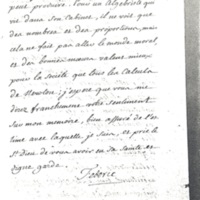 peut produire. Pour un Algebriste qui
vit dans son Cabinet, il ne voit que
des nombres et des proportions, mais
cela ne fait pas aller le monde moral,
et des bonnes mœurs valent mieux
pour la société que tous les Calculs
de Newton; j'espere que vous me
direz franchement votre sentiment
sur mon memoire, bien assuré de l'es
time avec laquelle je suis et prie le
St Dieu de vous avoir en Sa sainte et
digne garde.
Federic